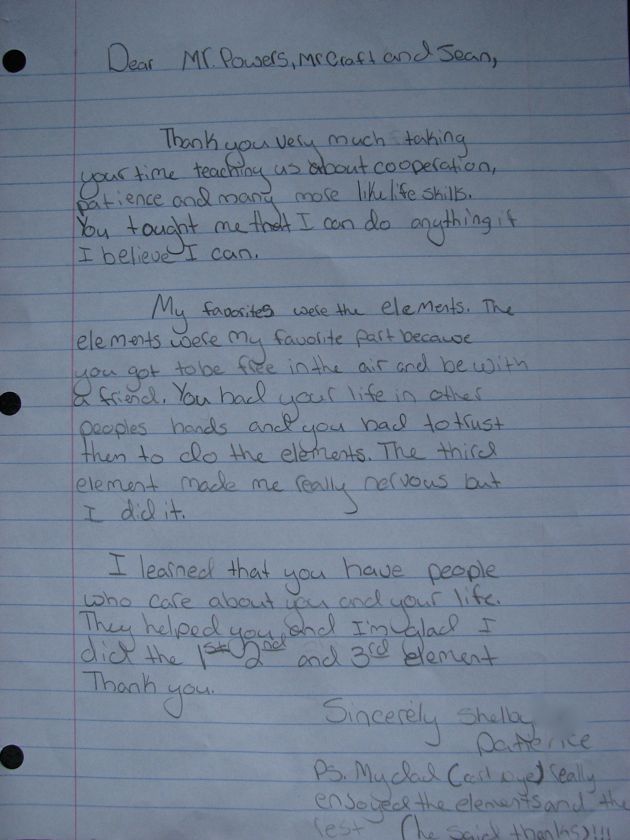 Dear Mr. Powers, Mr Craft and Sean,
Thank you very much taking
your time teaching us about cooperation,
patience and many more like life skills.
You tought me that I can do anything if
I believe I can.
My favorites were the elements. The
elements were my favorite part because
you got to be free in the air and be with
a friend. You had your life in other
peoples hands and you had to trust
then to do the elements. The third
element made me really nervous but
I did it.
I learned that you have people
who care about you and your life.
They helped you, and I'm glad I
did the 1st 2nd and 3rd element
Thank you.
Sincerely Shelby
Ps. My dad (        ) really
enjoyed the elements and the
rest (he said thanks)!!!